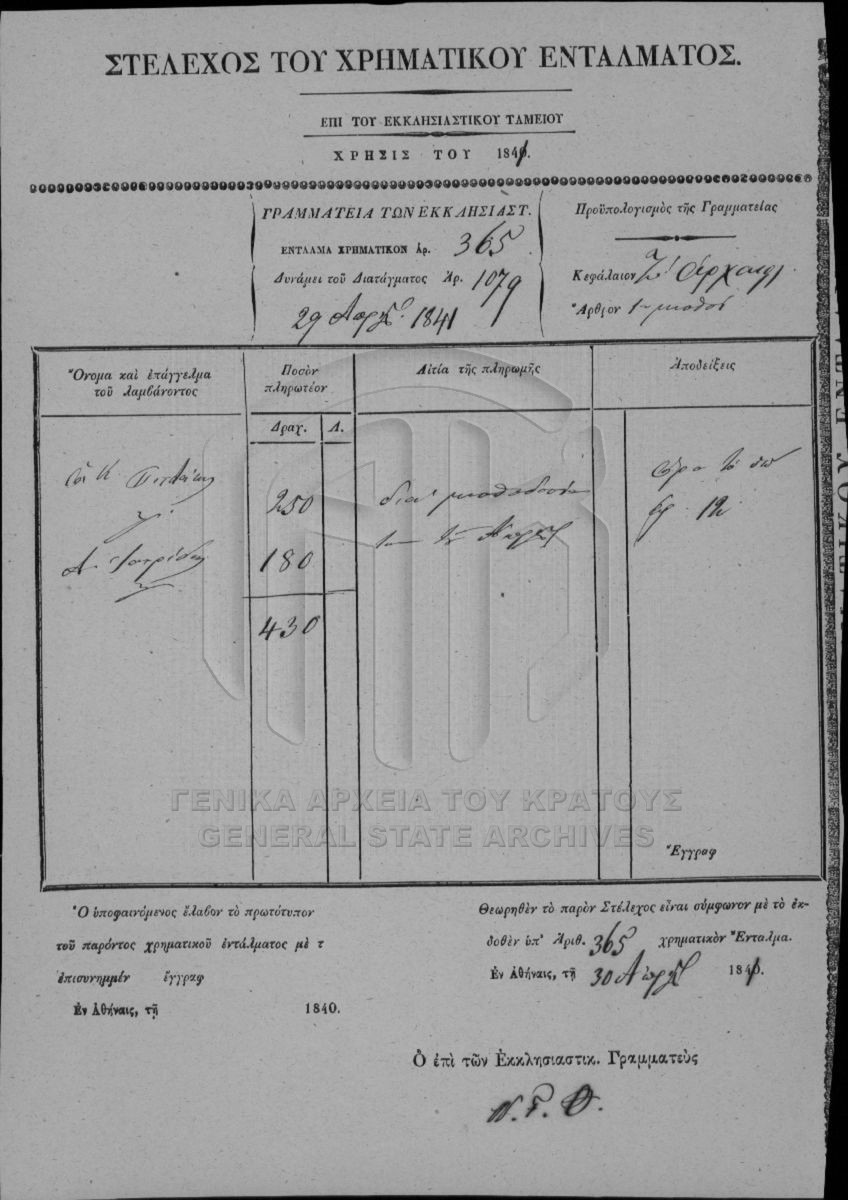 ΣΤΕΛΕΧΟΣ ΤΟΥ ΧΡΗΜΑΤΙΚΟΥ ΕΝΤΑΛΜΑΤΟΣ.
ΕΠΙ ΤΟΥ ΕΚΚΛΗΣΙΑΣΤΙΚΟΥ ΤΑΜΕΙΟΥ
ΧΡΗΣΙΣ ΤΟΥ 1841.
ΓΡΑΜΜΑΤΕΙΑ ΤΩΝ ΕΚΚΛΗΣΙΑΣΤ.
ΕΝΤΑΛΜΑ ΧΡΗΜΑΤΙΚΟΝ Ἀρ. 365
Δυνάμει τοῦ Διατάγματος Ἀρ. 1079
29 1841
Προϋπολογισμὸς τῆς Γραμματείας
Κεφάλαιον Ζ'
Ἄρθρον 1
Ὄνομα καὶ ἐπάγγελμα
τοῦ λαμβάνοντος
Ποσὸν
πληρωτέον
Αἰτία τῆς πληρωμῆς
Ἀποδείξεις
Δραχ. Λ.
Κ 250 διὰ
12
180
430
ΓΕΝΙΚΑ ΑΡΧΕΙΑ ΤΟΥ ΚΡΑΤΟΥΣ
GENERAL STATE ARCHIVES
Ἔγγραφ
Ὁ ὑποφαινόμενος ἔλαβον τὸ πρωτότυπον
τοῦ παρόντος χρηματικοῦ ἐντάλματος μὲ τ
ἐπισυνημμέν ἔγγραφ
Ἐν Ἀθήναις, τῇ 1840.
Θεωρηθὲν τὸ παρὸν Στέλεχος εἶναι σύμφωνον μὲ τὸ ἐκ-
δοθὲν ὑπ' Ἀριθ. 365 χρηματικὸν Ἔνταλμα.
Ἐν Ἀθήναις, τῇ 30 1841.
Ὁ ἐπὶ τῶν Ἐκκλησιαστικ. Γραμματεὺς